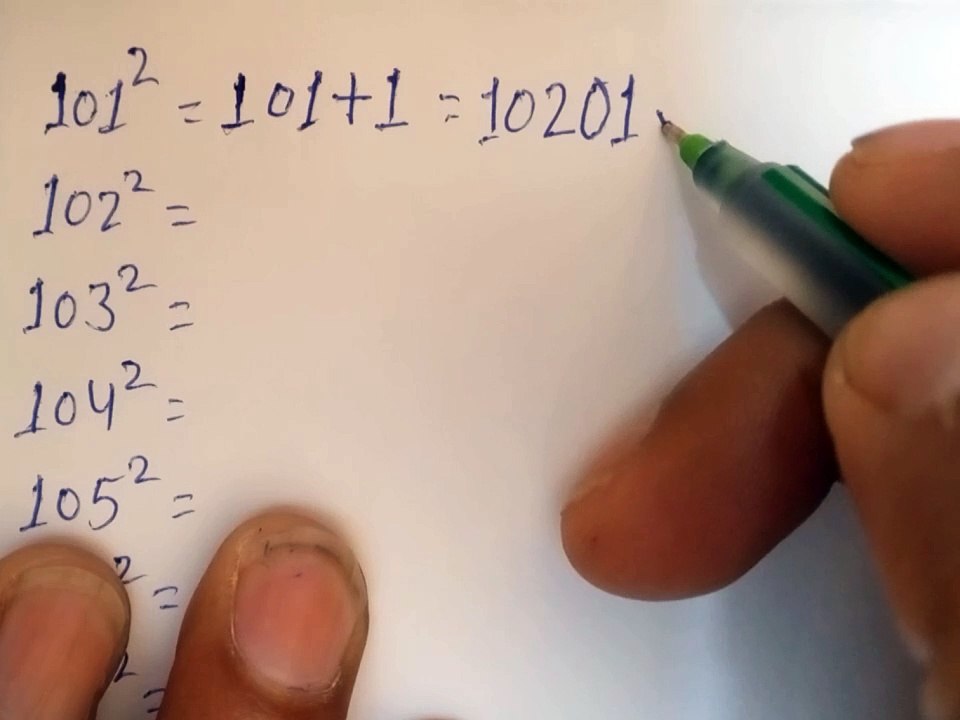 101² = 101+1 = 10201
102² =
103² =
104² =
105² =
² =
² =